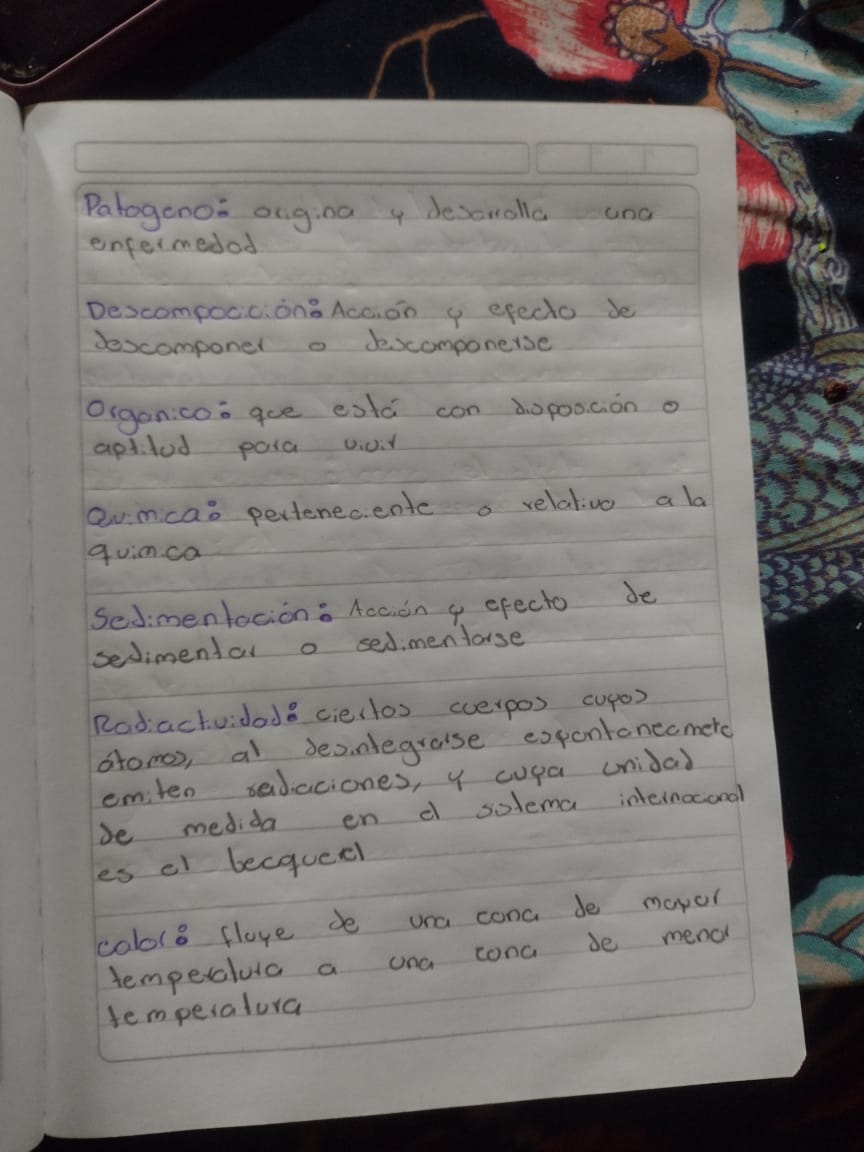 Patogeno: origina y desarrolla una
enfermedad
Descomposición: Acción y efecto de
descomponer o descomponerse
Organico: que está con disposición o
aptitud para vivir
Quimica: perteneciente o relativo a la
quimica
Sedimentación: Acción y efecto de
sedimentar o sedimentarse
Radiactividad: ciertos cuerpos cuyos
átomos, al desintegrarse espontaneamete
emiten radiaciones, y cuya unidad
de medida en el sistema internacional
es el becquerel
calor: fluye de una zona de mayor
temperatura a una zona de menor
temperatura